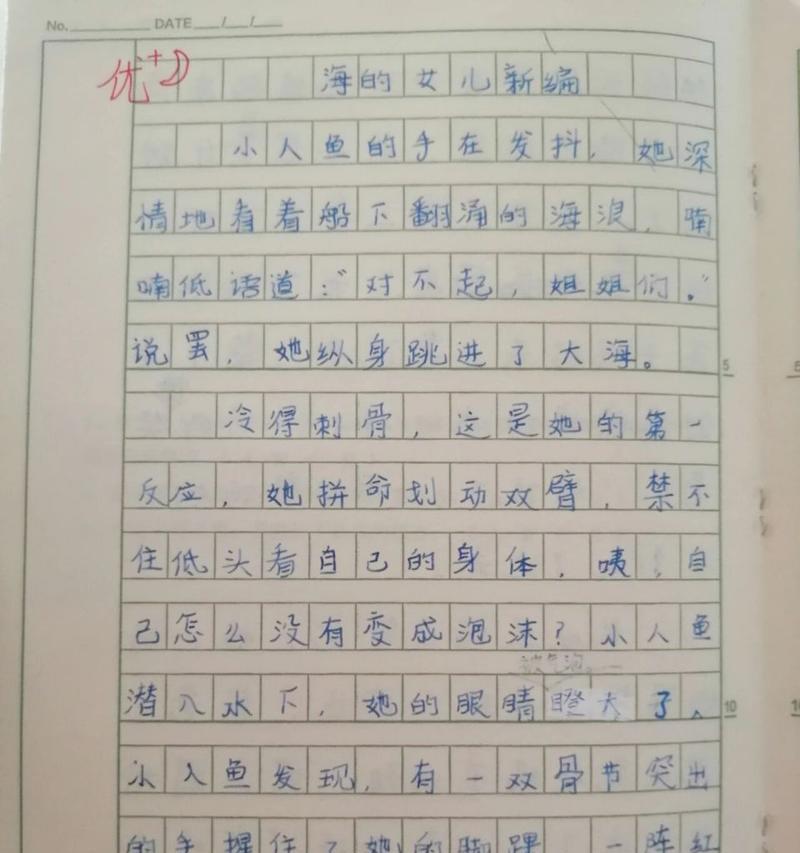 No. DATE / /
优+
海的女儿新编
小人鱼的手在发抖，她深
情地看着船下翻涌的海浪，喃
喃低语道：“对不起，姐姐们。”
说罢，她纵身跳进了大海。
5
冷得刺骨，这是她的第一
反应，她拼命划动双臂，禁不
住低头看自己的身体，咦，自
己怎么没有变成泡沫？小人鱼
潜入水下，她的眼睛瞪大了。
10
小人鱼发现，有一双骨节突出
的手握住了她的脚踝 一阵红